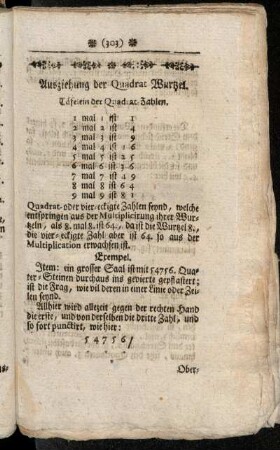 (303)
Ausziehung der Quadrat Wurtzel.
Täfelein der Quadrat-Zahlen.
1 mal 1 ist 1
2 mal 2 ist 4
3 mal 3 ist 9
4 mal 4 ist 16
5 mal 5 ist 25
6 mal 6 ist 36
7 mal 7 ist 49
8 mal 8 ist 64
9 mal 9 ist 81
Quadrat- oder vier-eckigte Zahlen seynd, welche
entspringen aus der Multiplicirung ihrer Wur-
tzeln, als 8. mal 8. ist 64., da ist die Wurtzel 8.,
die vier-eckigte Zahl aber ist 64. so aus der
Multiplication erwachsen ist.
Exempel.
Item: ein grosser Saal ist mit 54756. Qua-
ter-Steinen durchaus ins gevierte gepflastert;
ist die Frag, wie vil deren in einer Linie oder Zei-
len seynd.
Allhier wird allezeit gegen der rechten Hand
die erste, und von derselben die dritte Zahl, und
so fort punctirt, wie hier:
54756/
Ober-